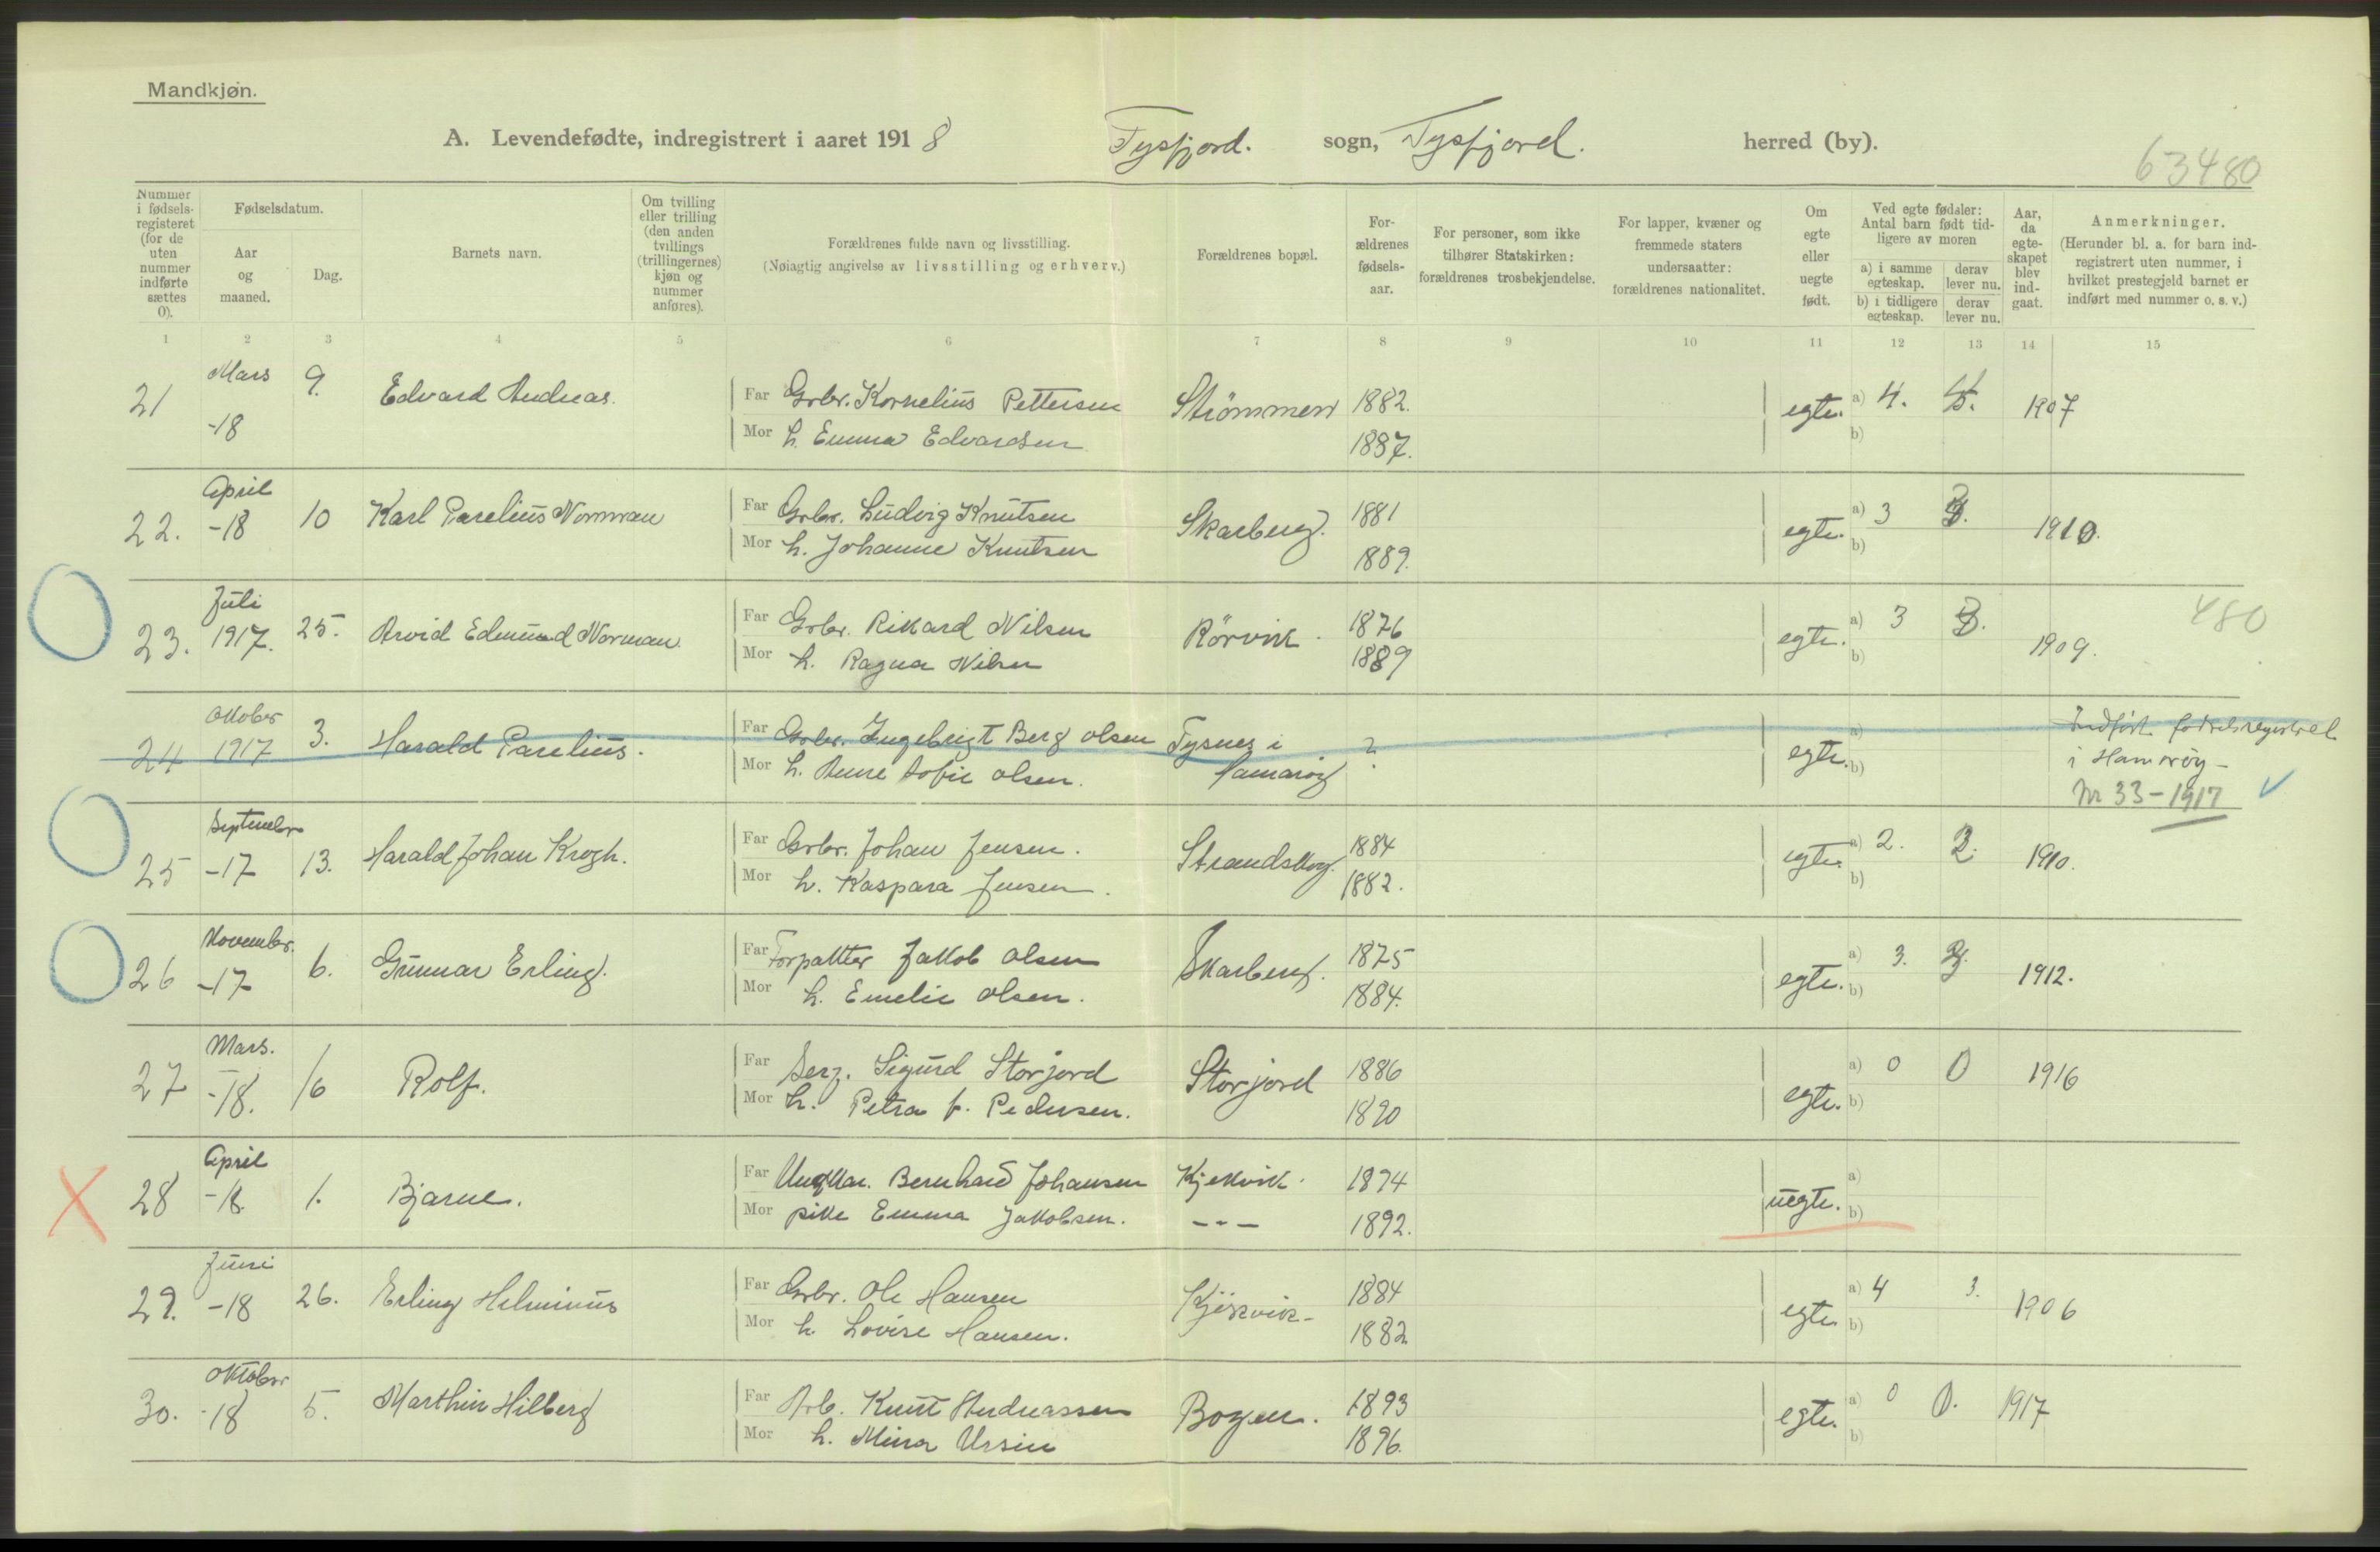 Mandkjøn.
A. Levendefødte, indregistrert i aaret 1918 Tysfjord. sogn, Tysfjord. herred (by).
63480
Nummer i fødsels-registeret (for de uten nummer indførte sættes 0).
Fødselsdatum.
Aar og maaned.
Dag.
Barnets navn.
Om tvilling eller trilling (den anden tvillings (trillingernes) kjøn og nummer anføres).
Forældrenes fulde navn og livsstilling.
(Nøiagtig angivelse av livsstilling og erhverv.)
Forældrenes bopæl.
For-ældrenes fødsels-aar.
For personer, som ikke tilhører Statskirken: forældrenes trosbekjendelse.
For lapper, kvæner og fremmede staters undersaatter: forældrenes nationalitet.
Om egte eller uegte født.
Ved egte fødsler: Antal barn født tid-ligere av moren
a) i samme egteskap. derav lever nu.
b) i tidligere egteskap. derav lever nu.
Aar, da egte-skapet blev ind-gaat.
Anmerkninger.
(Herunder bl. a. for barn ind-registrert uten nummer, i hvilket prestegjeld barnet er indført med nummer o. s. v.)
1 2 3 4 5 6 7 8 9 10 11 12 13 14 15
21 Mars -18 9. Edvard Andreas. Far Grbr. Kornelius Pettersen Strömmen 1882. egte. a) 4. 4. 1907
Mor h. Emma Edvardsen 1887. b)
22. April -18 10 Karl Parelius Norman Far Grbr. Ludvig Knutsen Skarberg. 1881 egte. a) 3 3. 1910.
Mor h. Johanne Knutsen 1889. b)
23. Juli 1917. 25. Arvid Edmund Norman. Far Grbr. Rikard Nilsen Rörvik. 1876 egte. a) 3 3. 1909. 480
Mor h. Ragna Nilsen 1889 b)
24 Oktober 1917 3. Harald Parelius. Far Grbr. Ingebrigt Berg Olsen Tysnes i Hamarøy ? egte. a) Indført fødselsregistret
Mor h. Anne Sofie Olsen. b) i Hamarøy -
Nr 33 - 1917
25 Septembr. -17 13. Harald Johan Krogh. Far Grbr. Johan Jensen. Strandskog. 1884 egte. a) 2. 2. 1910.
Mor h. Kaspara Jensen. 1882. b)
26 Novembr. -17 6. Gunnar Erling. Far Forpakter Jakob Olsen Skarberg. 1875 egte. a) 3. 3. 1912.
Mor h. Emelie Olsen. 1884. b)
27 Mars. -18. 16 Rolf. Far Serg. Sigurd Storjord Storjord 1886 egte. a) 0 0 1916
Mor h. Petra f. Pedersen. 1890 b)
28 April -18. 1. Bjarne. Far Ungkar. Bernhard Johansen Kjekvik. 1894 uegte. a)
Mor pike Emma Jakobsen. --- 1892. b)
29. Juni -18 26. Erling Helminus Far Grbr. Ole Hansen Kjökvik- 1884 egte a) 4 3. 1906
Mor h. Lovise Hansen. 1882. b)
30. Oktober -18 5. Marthin Hilberg Far Arb. Knut Andreassen Bogen. 1893 egte. a) 0 0. 1917
Mor h. Mina Ursin 1896. b)